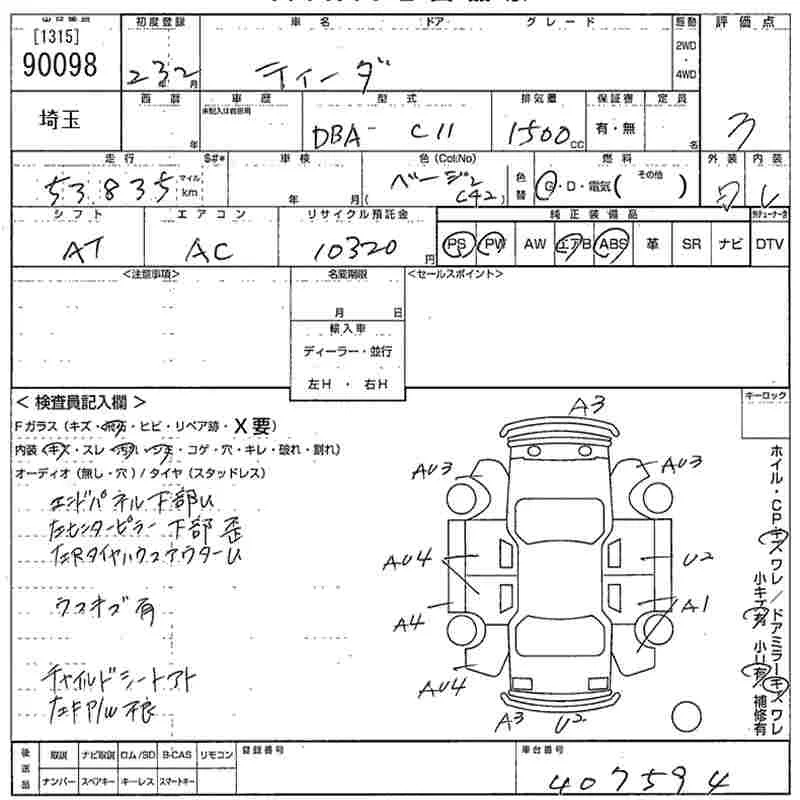 [1315]
90098
初度登録
車名
ドア
グレード
駆動
評価点
23年2月
ティーダ
2WD
・
4WD
3
埼玉
西暦
車歴
型式
排気量
保証書
定員
年
未記入は自家用
DBA- C11
1500 CC
有・無
名
走行
$#*
車検
色(Col:No)
燃料
外装
内装
53,835
マイル
km
年 月
ベージュ
(C42)
色替
G・D・電気(その他)
シフト
エアコン
リサイクル預託金
純正装備品
AT
AC
10320円
PS
PW
AW
エアB
ABS
革
SR
ナビ
DTV
<注意事項>
名変期限
<セールスポイント>
月 日
輸入車
ディーラー・並行
左H ・ 右H
<検査員記入欄>
キーロック
Fガラス(キズ・飛石・ヒビ・リペア跡・X要)
内装(キズ・スレ・汚れ・シミ・コゲ・穴・キレ・破れ・割れ)
オーディオ(無し・穴)/タイヤ(スタッドレス)
エンドパネル下部U
左センターピラー下部歪
左RタイヤハウスアウターU
ウスキズ有
チャイルドシートアト
A3
AU3
AU3
AU4
U2
A4
A1
AU4
A3
U2
ホイル・CP・キズワレ/ドアミラーキズワレ
小キズ有 小U有 補修有
後送品
取説
ナビ取説
ロム/SD
B-CAS
リモコン
登録番号
車台番号
ナンバー
スペアキー
キーレス
スマートキー
407594